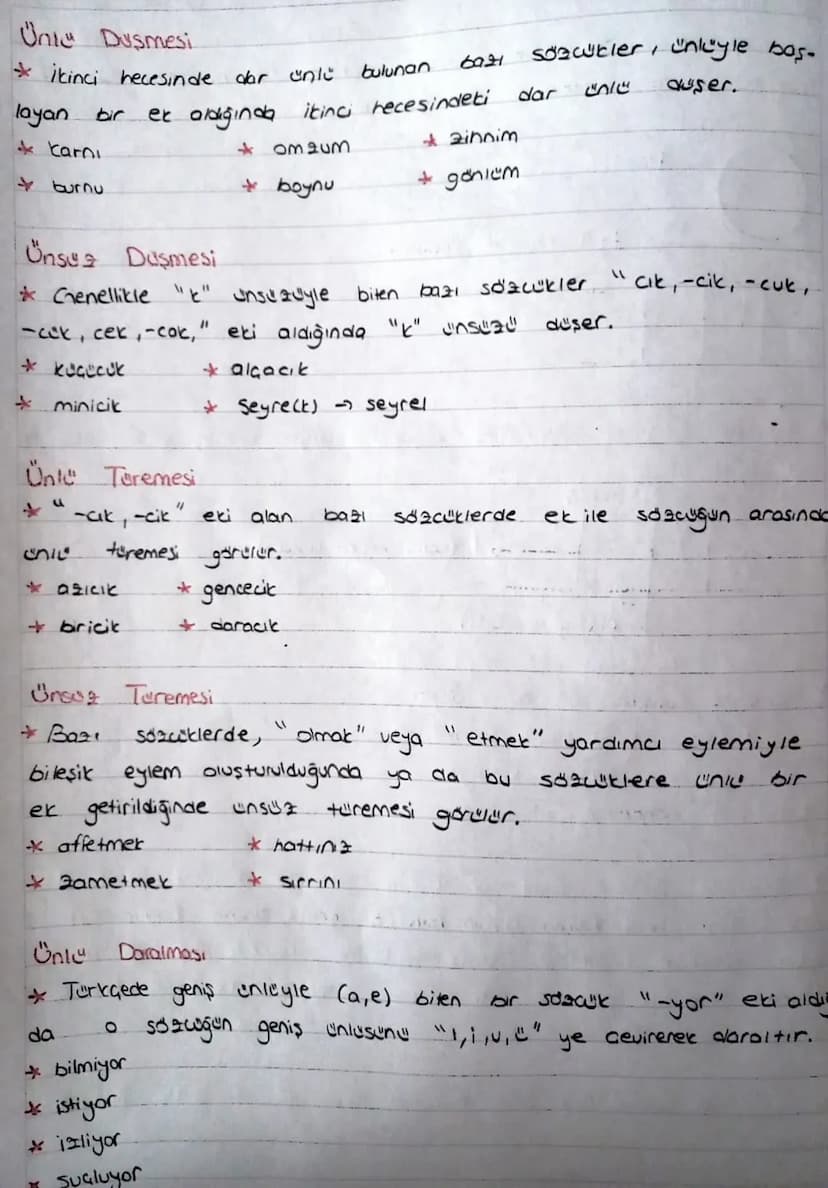 Ünlü Düşmesi
* İkinci hecesinde dar ünlü bulunan bazı sözcükler, ünlüyle baş-
layan bir ek aldığında ikinci hecesindeki dar ünlü düşer.
* karnı * omzum * zihnim
* burnu * boynu * gönlüm
Ünsüz Düşmesi
* Genellikle "k" ünsüzüyle biten bazı sözcükler "cık, -cik, -cuk,
-cük, cek, -cak," eki aldığında "k" ünsüzü düşer.
* küçücük * alçacık
* minicik * Seyre(k) → seyrel
Ünlü Türemesi
* "-cık, -cik" eki alan bazı sözcüklerde ek ile sözcüğün arasında
ünlü türemesi görülür.
* azıcık * gencecik
* biricik * daracık
Ünsüz Türemesi
* Bazı sözcüklerde, "olmak" veya "etmek" yardımcı eylemiyle
bileşik eylem oluşturulduğunda ya da bu sözcüklere ünlü bir
ek getirildiğinde ünsüz türemesi görülür.
* affetmek * hattınız
* zametmek * sırrını
Ünlü Daralması
* Türkçede geniş ünlüyle (a,e) biten bir sözcük "-yor" eki aldığı
da o sözcüğün geniş ünlüsünü "ı,i,u,ü" ye çevirerek daraltır.
* bilmiyor
* istiyor
* izliyor
* suçluyor